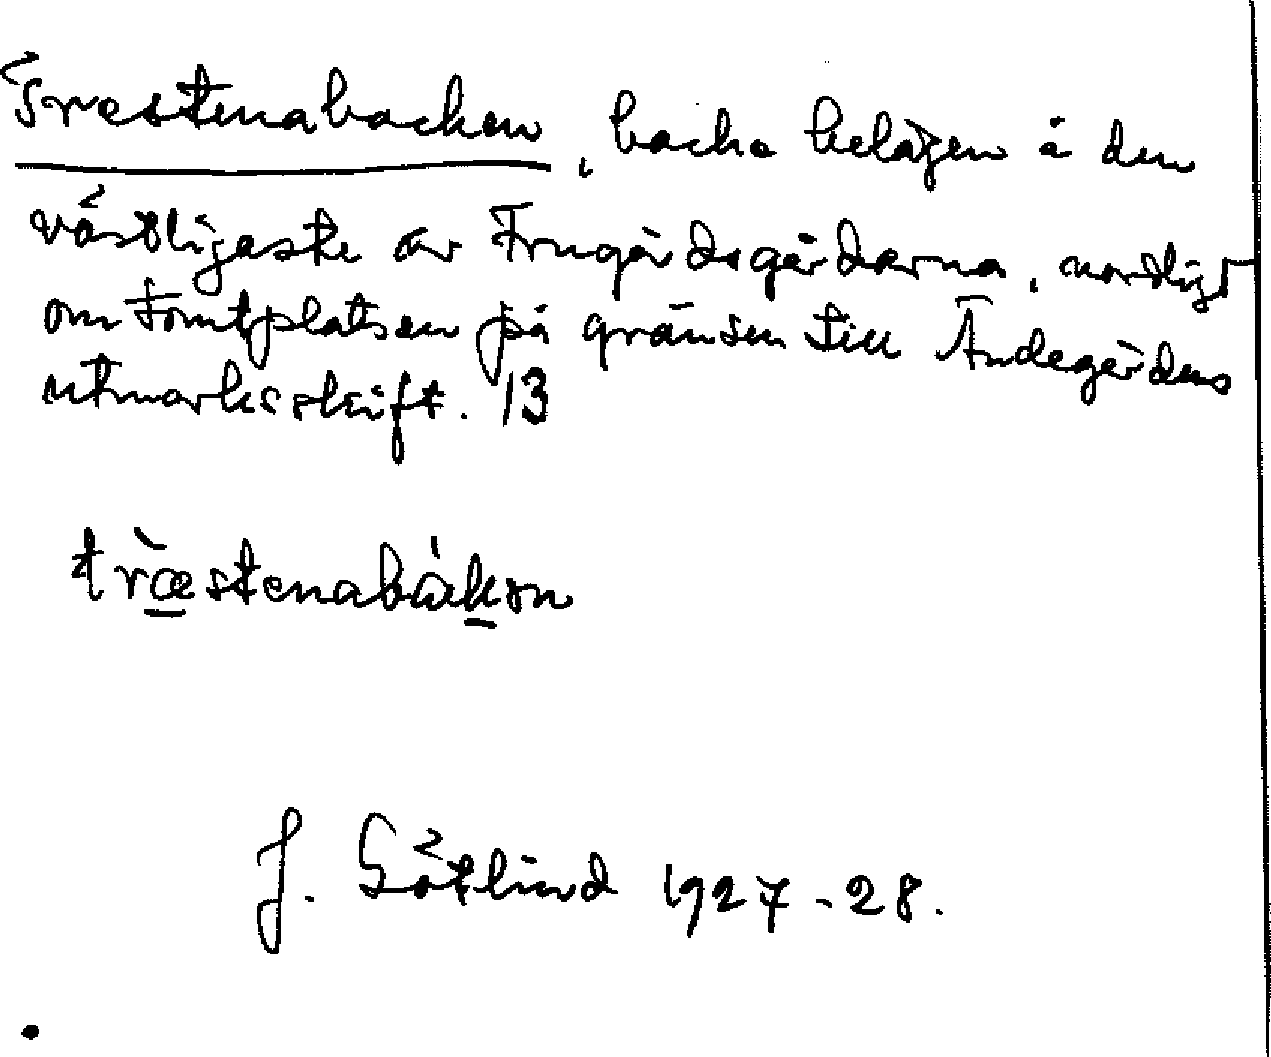 Trestenabacken, backe belägen å den
västligaste av Frugårdsgårdarna, nordligt
om tomtplatsen på gränsen till Åndegårdens
utmarksskift. 13
træ̀stenabák̲ən
J. Götlind 1927-28.